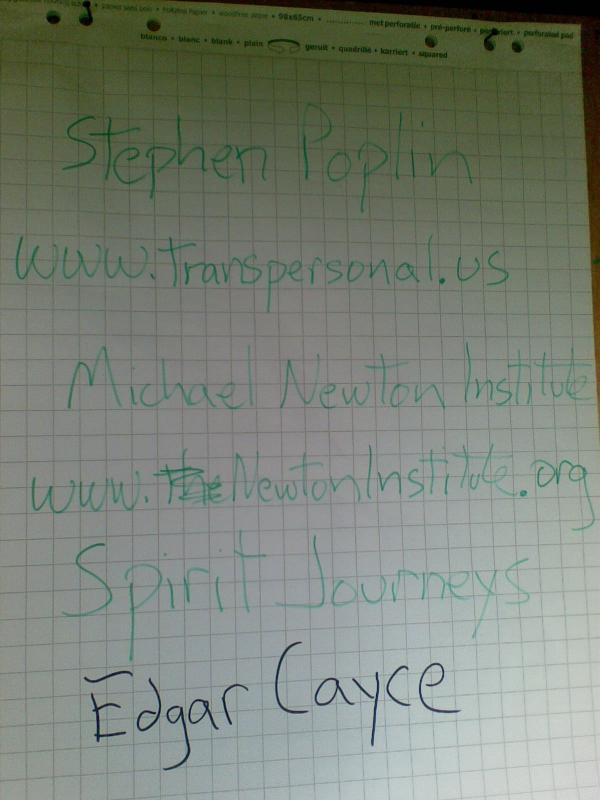 papier • woodfree paper • 98x65cm • .............. met perforatie • pré-perforé • perforiert • perforated pad
blanco • blanc • blank • plain geruit • quadrillé • karriert • squared
Stephen Poplin
www.transpersonal.us
Michael Newton Institute
www.theNewtonInstitute.org
Spirit Journeys
Edgar Cayce